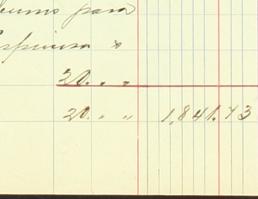 bumo para
Espinosa &
20. " "
20. " " 1,841.43